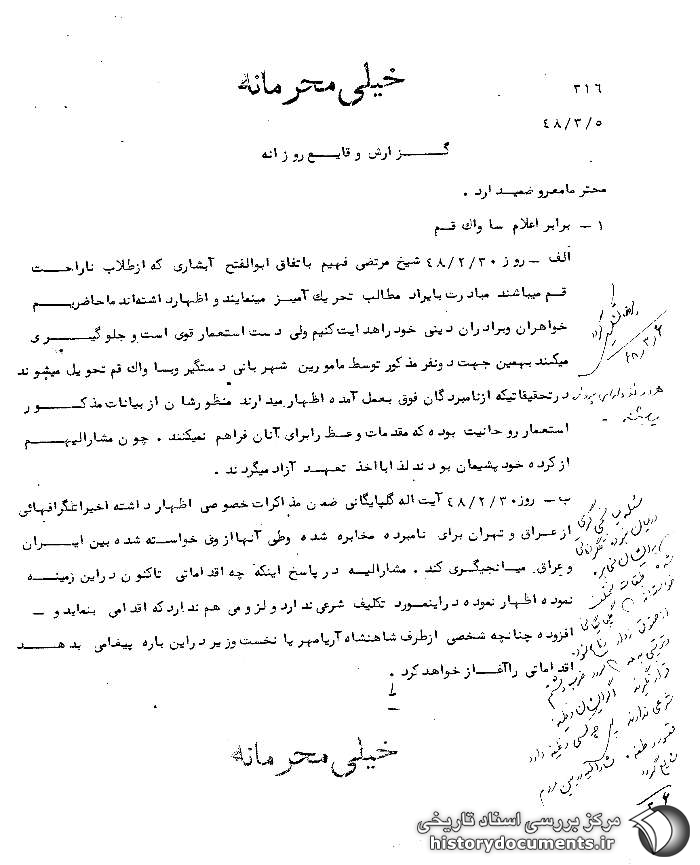 خیلی محرمانه
۳۱۶
۴۸/۳/۵
گزارش وقایع روزانه
محترما معروض میدارد .
۱ – برابر اعلام ساواك قم
الف – روز ۴۸/۲/۳۰ شیخ مرتضی فهیم باتفاق ابوالفتح آبشاری که ازطلاب ناراحت
قم میباشند مبادرت بایراد مطالب تحریك آمیز مینمایند و اظهارداشته‌اند ماحاضریم
خواهران وبرادران دینی خود راهدایت کنیم ولی دست استعمار قوی است و جلوگیری
میکنند بهمین جهت دونفر مذکور توسط مامورین شهربانی دستگیر وبساواك قم تحویل میشوند
درتحقیقاتیکه ازنامبردگان فوق بعمل آمده اظهار میدارند منظورشان از بیانات مذکور
استعمار روحانیت بوده که مقدمات وعظ رابرای آنان فراهم نمیکنند . چون مشارالیهم
ازکرده خود پشیمان بودند لذا بااخذ تعهد آزاد میگردند .
ب – روز ۴۸/۲/۳۰ آیت اله گلپایگانی ضمن مذاکرات خصوصی اظهار داشته اخیراتلگرافهائی
ازعراق و تهران برای نامبرده مخابره شده وطی آنها ازوی خواسته شده بین ایران
وعراق میانجیگری کند . مشارالیه در پاسخ اینکه چه اقداماتی تاکنون دراین زمینه
نموده اظهار نموده دراینمورد تکلیف شرعی ندارد و لزومی هم ندارد که اقدامی بنماید و –
افزوده چنانچه شخصی ازطرف شاهنشاه آریامهر یا نخست وزیر دراین باره پیغامی بدهد
اقداماتی راآغاز خواهد کرد .
خیلی محرمانه
مرکز بررسی اسناد تاریخی
historydocuments.ir